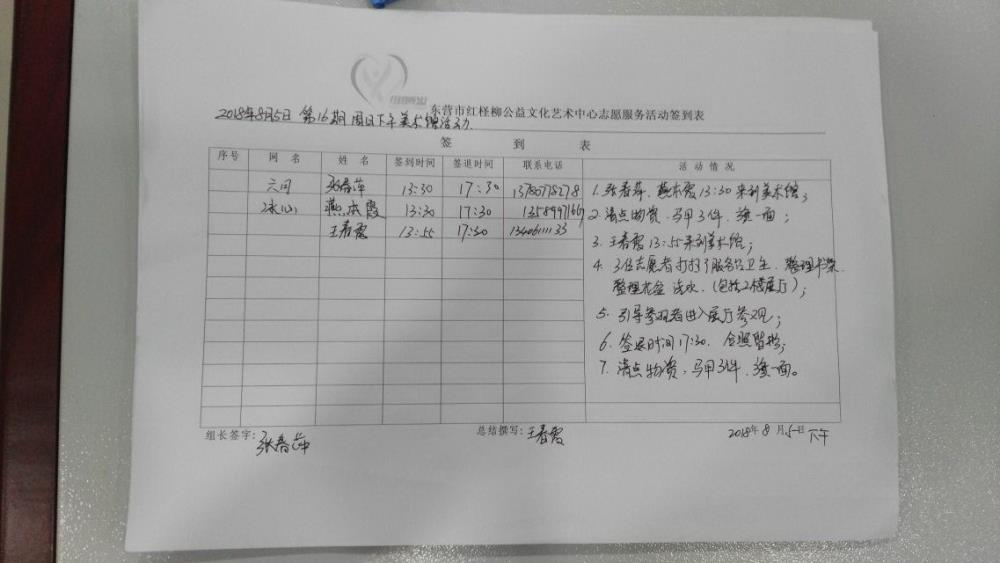 东营市红柽柳公益文化艺术中心志愿服务活动签到表
2018年8月5日 第16期 周日下午美术馆活动.
签 到 表
序号 网 名 姓 名 签到时间 签退时间 联系电话 活 动 情 况
张春萍 13:30 17:30 13780778278
冰心 燕本霞 13:30 17:30
王春霞 13:55 17:30
1. 张春萍、燕本霞13:30来到美术馆;
2. 清点物资、马甲3件、旗一面;
3. 王春霞13:55来到美术馆;
4. 3位志愿者打扫了服务台卫生、整理书架、
整理花盆浇水、(包括2楼展厅);
5. 引导参观者进入展厅参观;
6. 签退时间17:30、合照留影;
7. 清点物资、马甲3件、旗一面。
组长签字:张春萍
总结撰写:王春霞
2018年8月5日下午